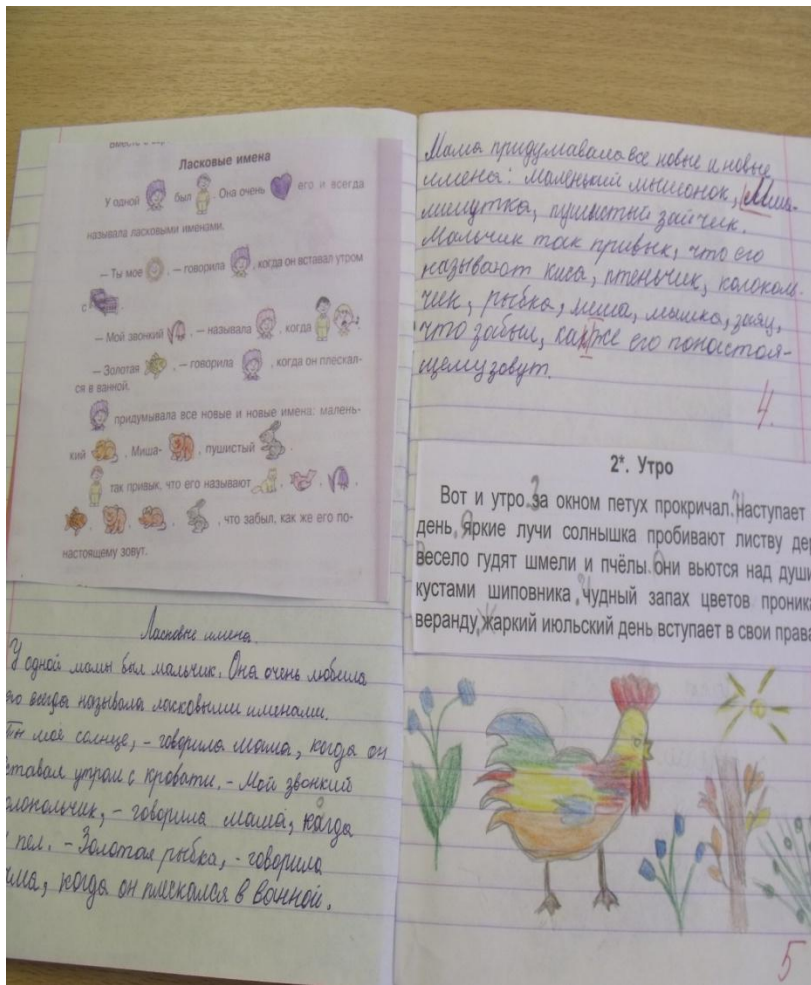 Ласковые имена
У одной был . Она очень его и всегда
называла ласковыми именами.
— Ты мое , — говорила , когда он вставал утром
с .
— Мой звонкий , — называла , когда
— Золотая , — говорила , когда он плескал-
ся в ванной.
придумывала все новые и новые имена: малень-
кий , Миша- , пушистый .
так привык, что его называют , , ,
, , , , что забыл, как же его по-
настоящему зовут.
Ласковые имена.
У одной мамы был мальчик. Она очень любила
его всегда называла ласковыми именами.
Ты моё солнце, – говорила мама, когда он
вставал утром с кровати. – Мой звонкий
колокольчик, – говорила мама, когда
пел. – Золотая рыбка, – говорила
мама, когда он плискался в ванной.
Мама придумавала все новые и новые
имена: маленький мышонок, Миша-
мишутка, пушистый зайчик.
Мальчик так привык, что его
называют киса, птенчик, колоколь-
чик, рыбка, миша, мышка, заяц,
что забыл, как же его понастоя-
щему зовут.
4.
2*. Утро
Вот и утро За окном петух прокричал. Наступает
день. Яркие лучи солнышка пробивают листву дер
Весело гудят шмели и пчёлы. Они вьются над души
кустами шиповника. Чудный запах цветов проника
веранду. Жаркий июльский день вступает в свои права
5